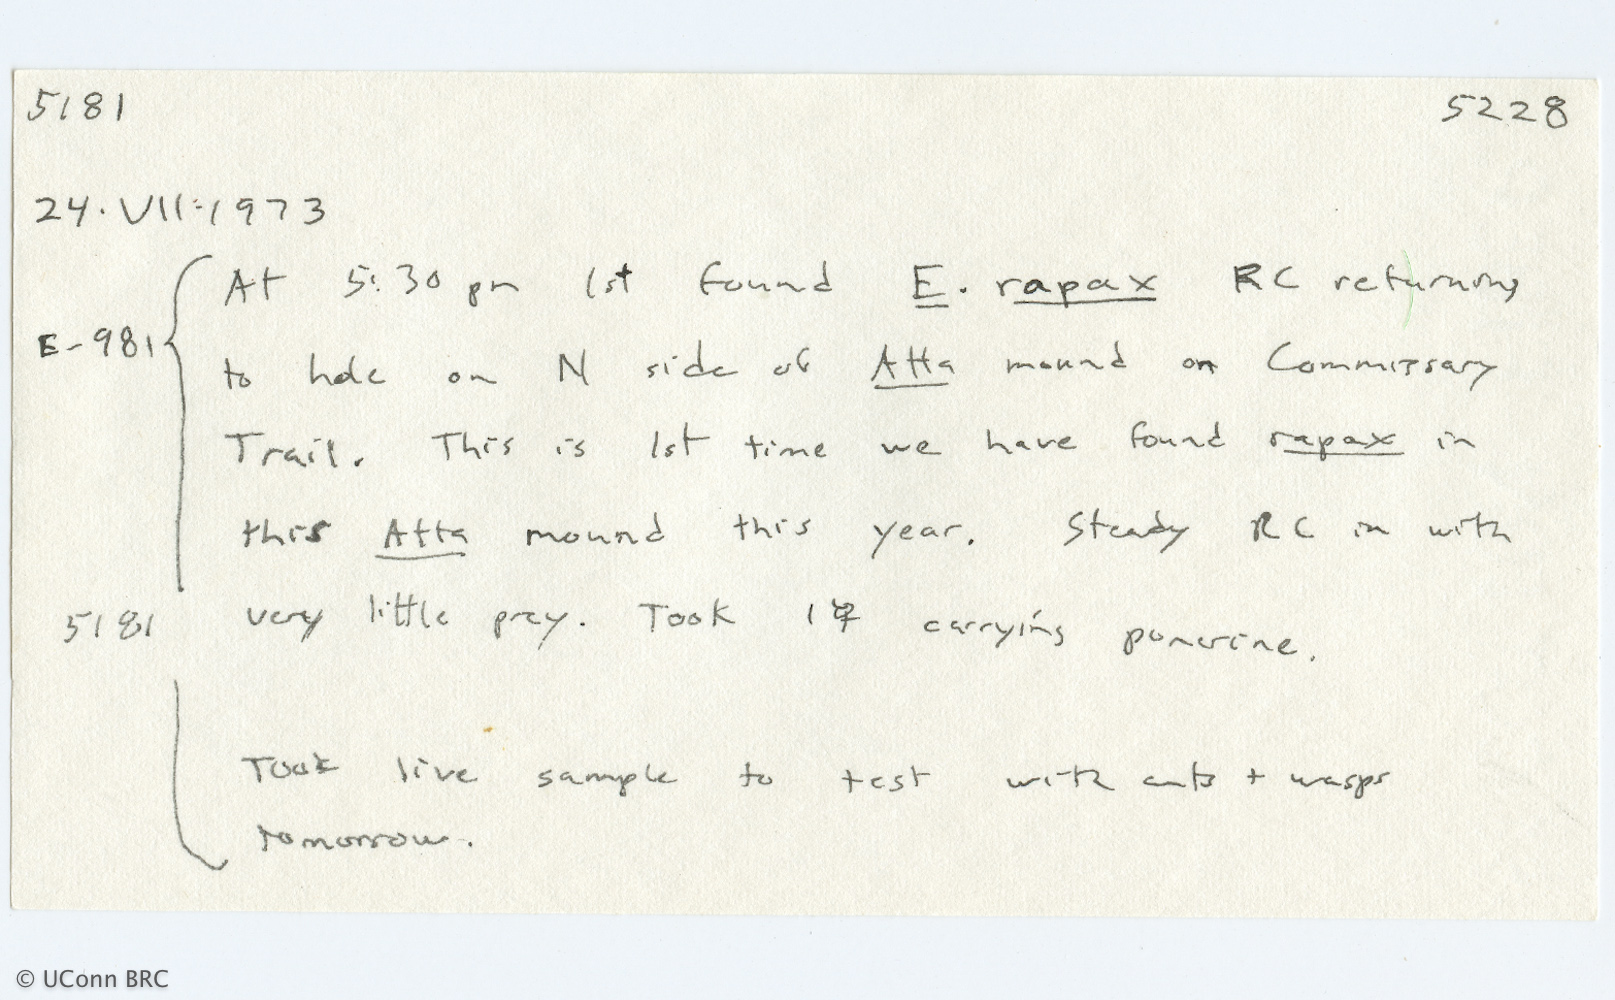 5181 5228
24.VII.1973
At 5:30 pm 1st found E. rapax RC returning
E-981
to hole on N side of Atta mound on Commissary
Trail. This is 1st time we have found rapax in
this Atta mound this year. Steady RC in with
5181 very little prey. Took 1 ☿ carrying ponerine.
Took live sample to test with ants + wasps
tomorrow.
© UConn BRC